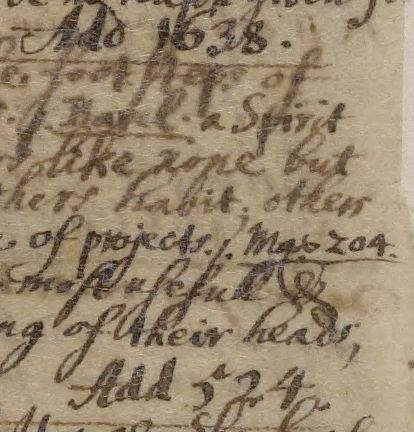 Add 1638.
foot steps of
a Spirit
like rope but
thers habit, others
of projects. /. Mg. 204.
most usefull &
ng of their heads,
Add 524.